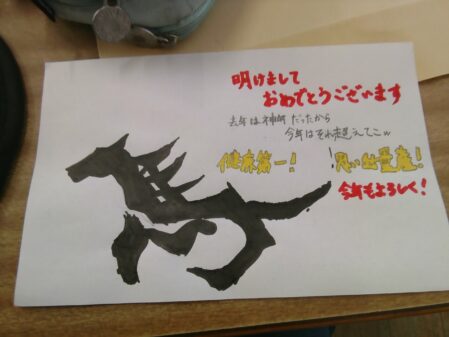 明けまして
おめでとうございます
去年は神町だったから
今年はそれ超えてこw
健康第一！
思い出量産！
今年もよろしく！